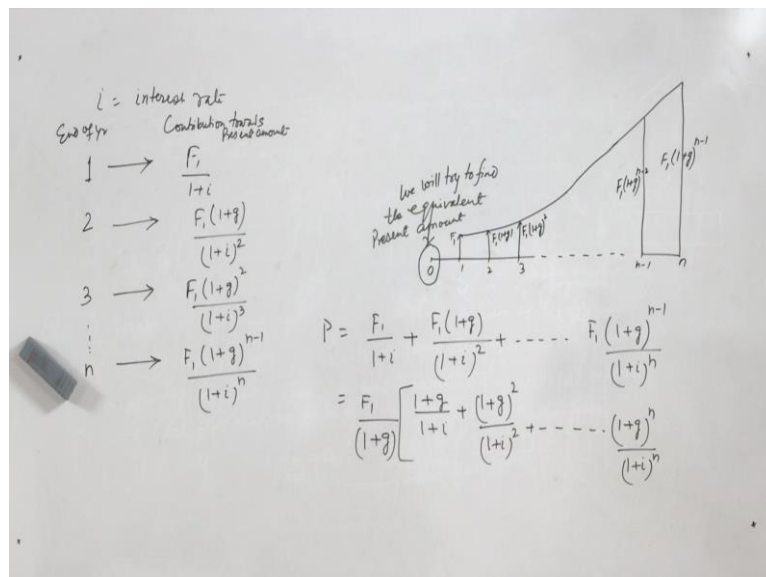 i = interest rate
End of yr Contribution towards
Present amount
1 → F₁/(1+i)
2 → F₁(1+g)/(1+i)²
3 → F₁(1+g)²/(1+i)³
⋮
n → F₁(1+g)ⁿ⁻¹/(1+i)ⁿ
we will try to find
the equivalent
Present amount
F₁ F₁(1+g) F₁(1+g)² F₁(1+g)ⁿ⁻² F₁(1+g)ⁿ⁻¹
0 1 2 3 ------ n-1 n
P = F₁/(1+i) + F₁(1+g)/(1+i)² + ----- F₁(1+g)ⁿ⁻¹/(1+i)ⁿ
= F₁/(1+g) [ (1+g)/(1+i) + (1+g)²/(1+i)² + ------ (1+g)ⁿ/(1+i)ⁿ